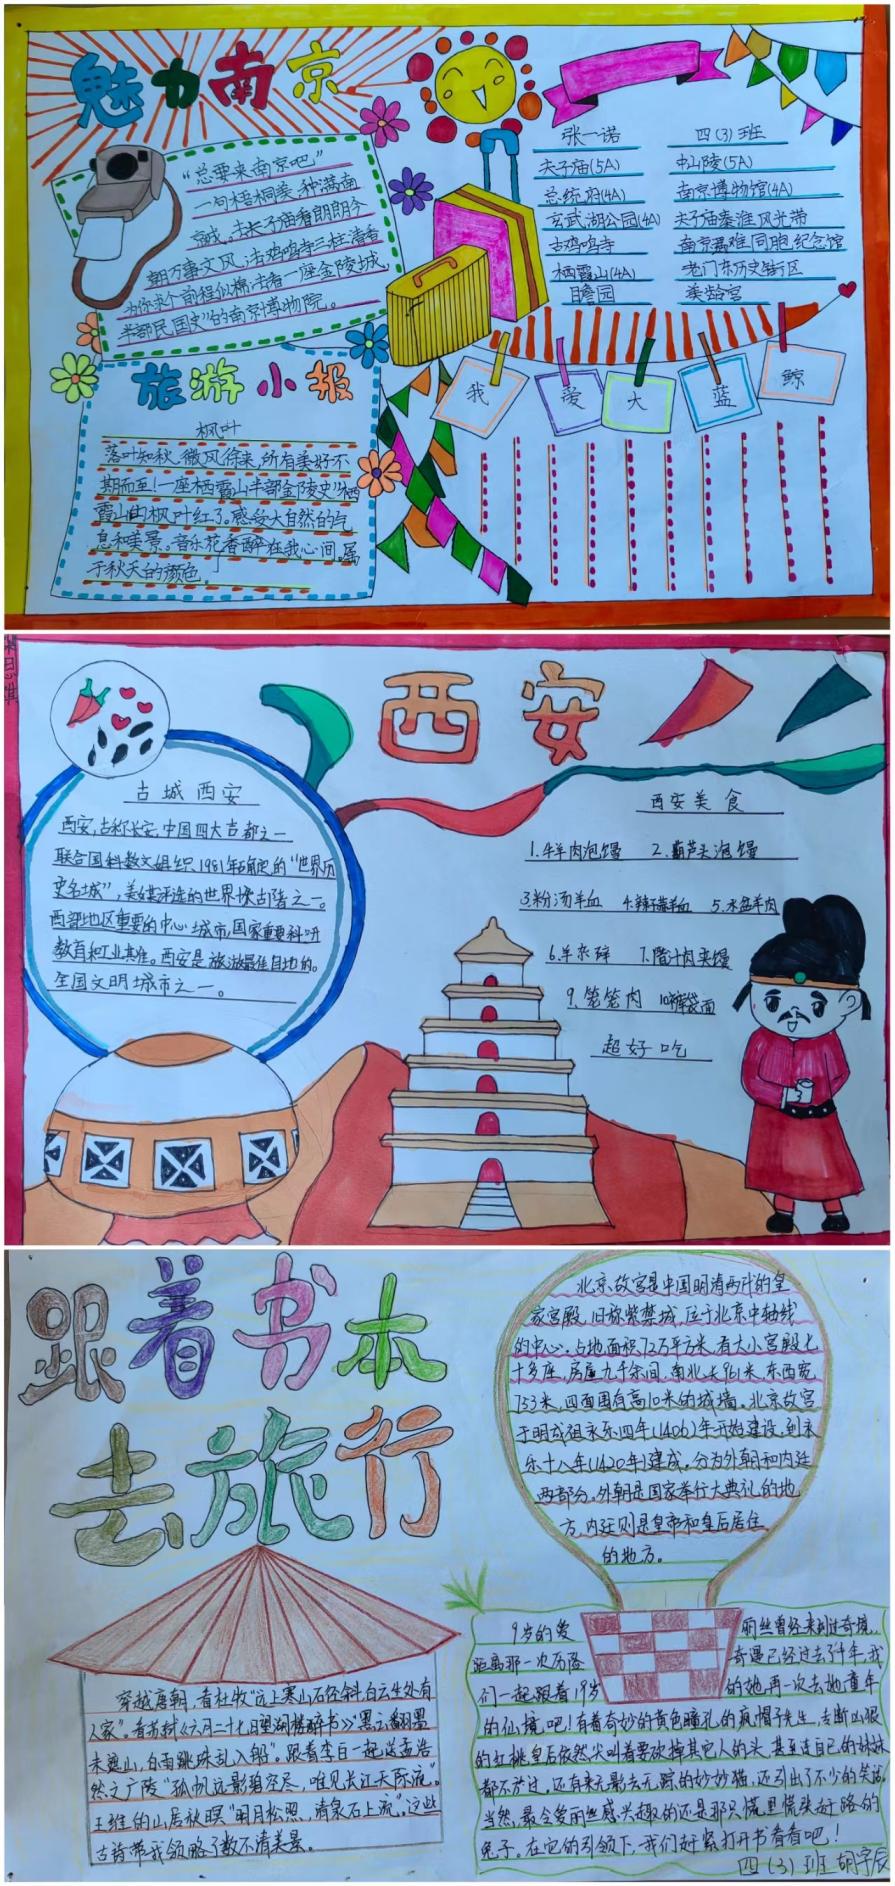 魅力南京
“总要来南京吧”
一句梧桐美，种满南
京城。去夫子庙看朗朗今
朝万事文风，沽鸡鸣寺三柱清香
为你求个前程似棉，沽看一座金陵城，
半部民国史”的南京博物院。
张一诺 四(3)班
夫子庙(5A) 中山陵(5A)
总统府(4A) 南京博物馆(4A)
玄武湖公园(4A) 夫子庙秦淮风光带
古鸡鸣寺 南京遇难同胞纪念馆
栖霞山(4A) 老门东历史街区
瞻园 美龄宫
我爱大蓝鲸
旅游小报
枫叶
落叶知秋，微风徐来，所有美好不
期而至！一座栖霞山半部金陵史”栖
霞山的枫叶红了。感受大自然的气
息和美景。音乐花香醉在我心间。属
于秋天的颜色。
西安
古城西安
西安，古称长安，中国四大古都之一
联合国科教文组织，1981年确定的“世界历
史名城”，美媒评选的世界十大古都之一。
西部地区重要的中心城市，国家重要科研
教育和工业基准。西安是旅游最佳目地的。
全国文明城市之一。
西安美食
1.牛羊肉泡馍 2.葫芦头泡馍
3粉汤羊血 4.辣子蒜羊血 5.水盆羊肉
6.羊杂碎 7.腊汁肉夹馍
9、笼笼肉 10裤袋面
超好吃
跟着书本
去旅行
北京故宫是中国明清两代的皇
家宫殿，旧称紫禁城，位于北京中轴线
的中心。占地面积72万平方米，有大小宫殿七
十多座，房屋九千余间，南北长961米，东西宽
753米，四面围有高10米的城墙。北京故宫
于明成祖永乐四年(1406)年开始建设，到永
乐十八年(1420年)建成。分为外朝和内廷
两部分。外朝是国家举行大典礼的地
方，内廷则是皇帝和皇后居住
的地方。
穿越唐朝，看杜牧“远上寒山石径斜，白云生处有
人家”。看苏轼《六月二十七日望湖楼醉书》“黑云翻墨
未遮山，白雨跳珠乱入船”。跟着李白一起送孟浩
然之广陵“孤帆远影碧空尽，唯见长江天际流”。
王维的山居秋暝“明月松照，清泉石上流”。这些
古诗带我领略了数不清美景。
9岁的爱丽丝曾经来到过奇境，
距离那一次历险奇遇已经过去了十年，我
们一起跟着19岁的她，再一次去她童年
的仙境吧！有着奇妙的黄色瞳孔的疯帽子先生，专断凶狠
的红桃皇后依然尖叫着要砍掉其它人的头，甚至连自已的妹妹
都不放过。还有来无影去无踪的妙妙猫，还引出了不少的笑话，
当然，最令爱丽丝感兴趣的还是那只慌里慌张赶路的
兔子。在它的引领下，我们赶紧打开书看看吧！
四(3)班胡宇辰